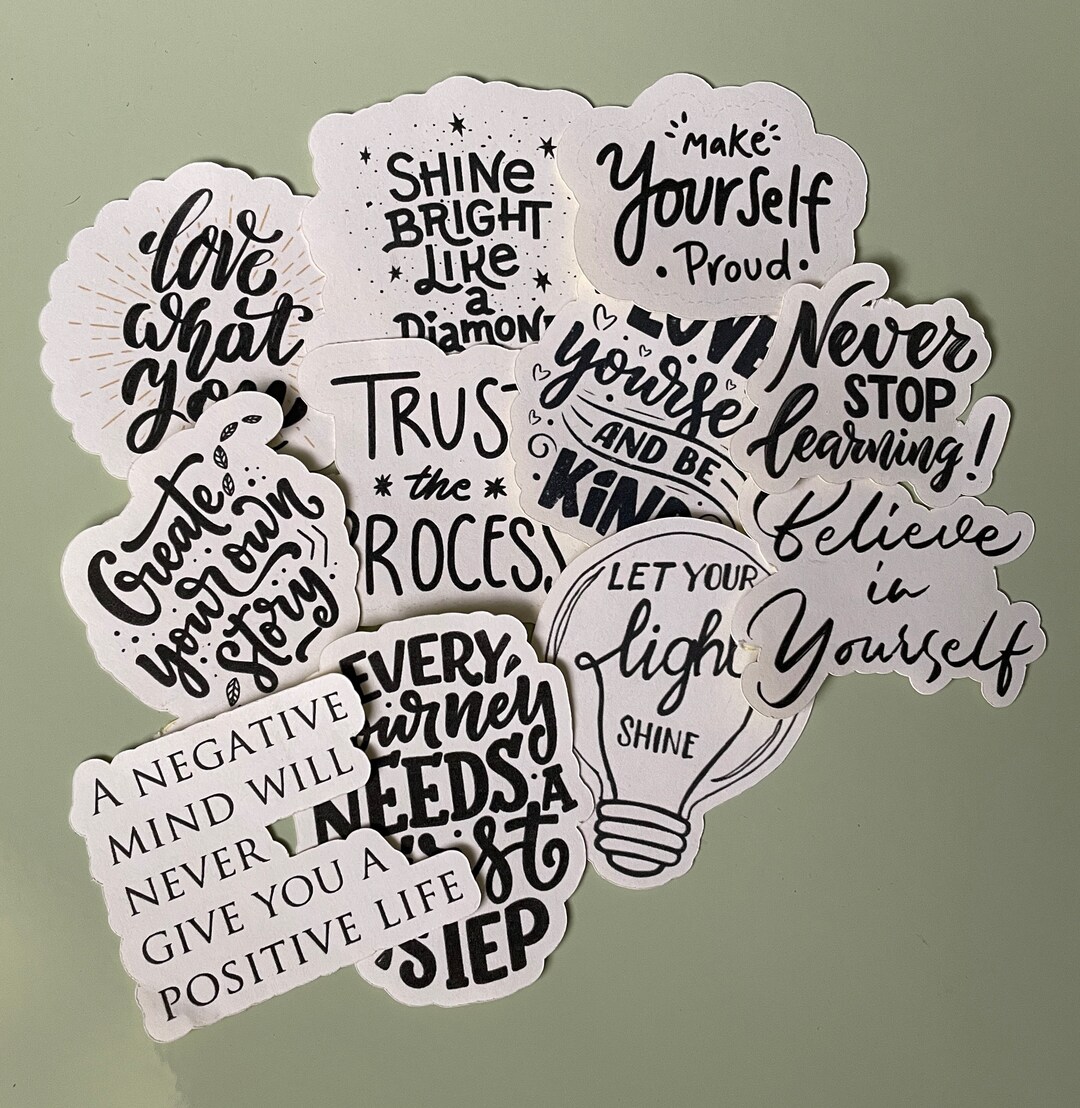 love
what
you
SHINe
BRIGHT
LIKe
a
DiamoN
make
Yourself
Proud
TRUS
the
PROCES
LOVE
yourse
AND BE
KIND
Never
STOP
learning!
Create
your own
Story
LET YOUR
light
SHINE
Believe
in
Yourself
EVERY
Journey
NEEDS A
first
STEP
A NEGATIVE
MIND WILL
NEVER
GIVE YOU A
POSITIVE LIFE